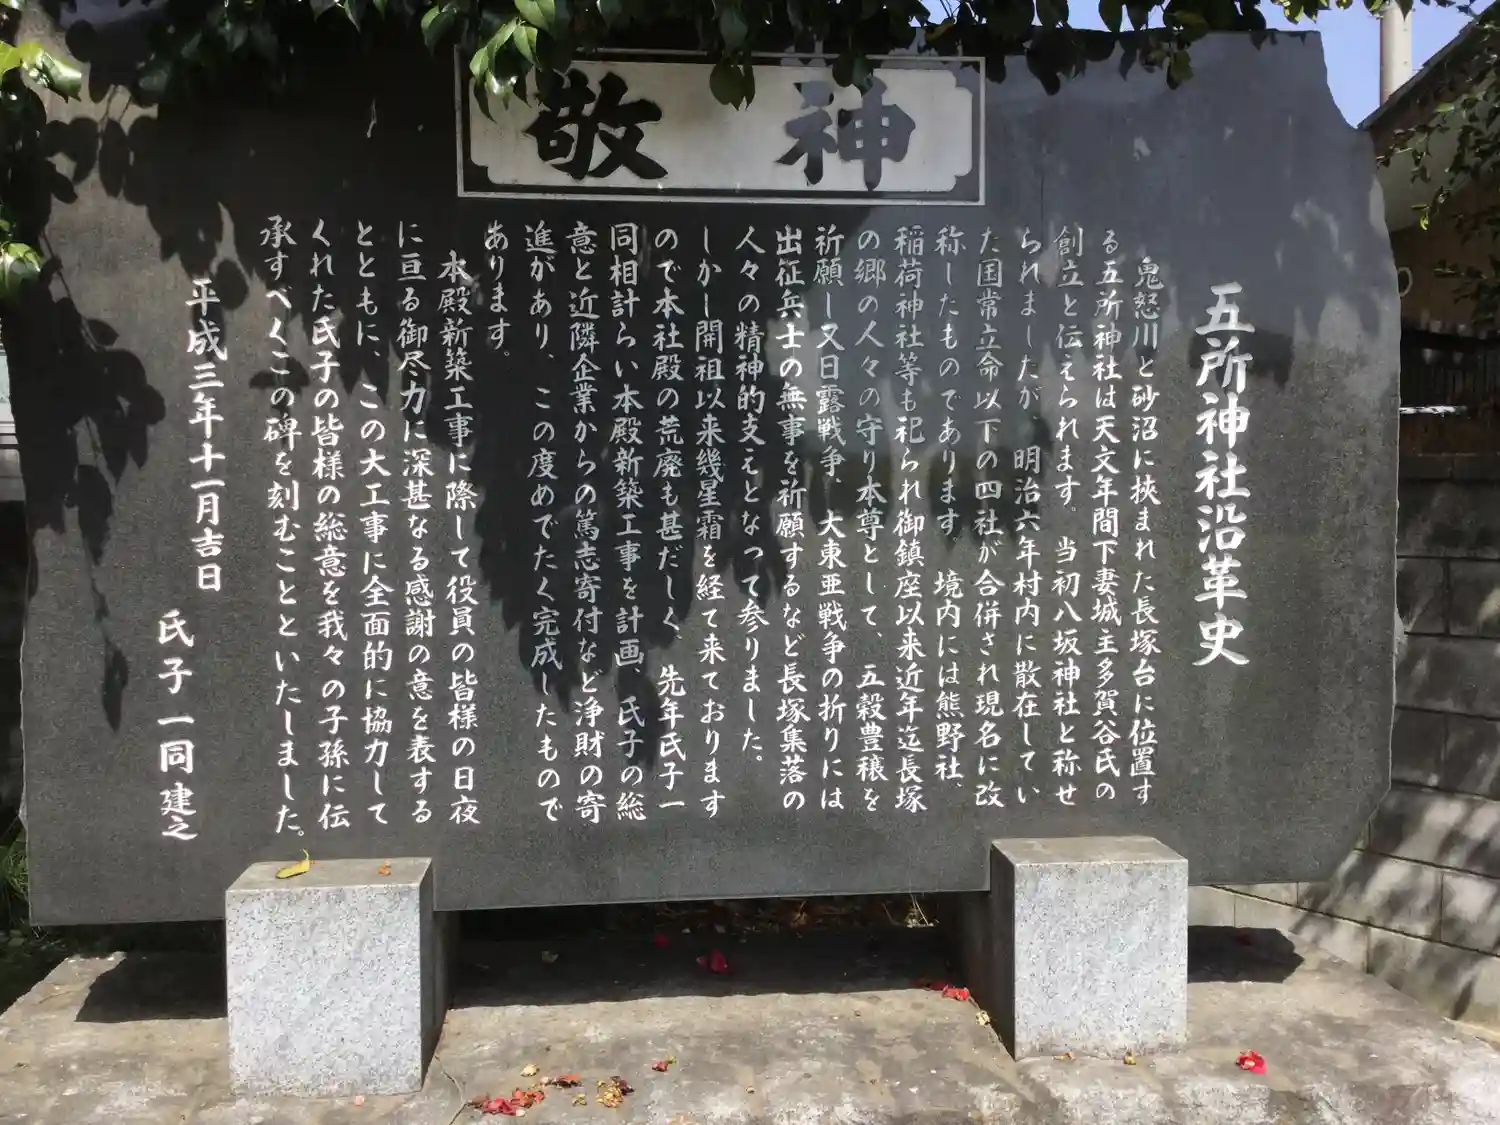 敬神
五所神社沿革史
鬼怒川と砂沼に挟まれた長塚台に位置す
る五所神社は天文年間下妻城主多賀谷氏の
創立と伝えられます。当初八坂神社と称せ
られましたが、明治六年村内に散在してい
た国常立命以下の四社が合併され現名に改
称したものであります。境内には熊野社、
稲荷神社等も祀られ御鎮座以来近年迄長塚
の郷の人々の守り本尊として、五穀豊穣を
祈願し又日露戦争、大東亜戦争の折りには
出征兵士の無事を祈願するなど長塚集落の
人々の精神的支えとなつて参りました。
しかし開祖以来幾星霜を経て来ております
ので本社殿の荒廃も甚だしく、先年氏子一
同相計らい本殿新築工事を計画、氏子の総
意と近隣企業からの篤志寄付など浄財の寄
進があり、この度めでたく完成したもので
あります。
本殿新築工事に際して役員の皆様の日夜
に亘る御尽力に深甚なる感謝の意を表する
とともに、この大工事に全面的に協力して
くれた氏子の皆様の総意を我々の子孫に伝
承すべくこの碑を刻むことといたしました。
平成三年十一月吉日
氏子一同建之